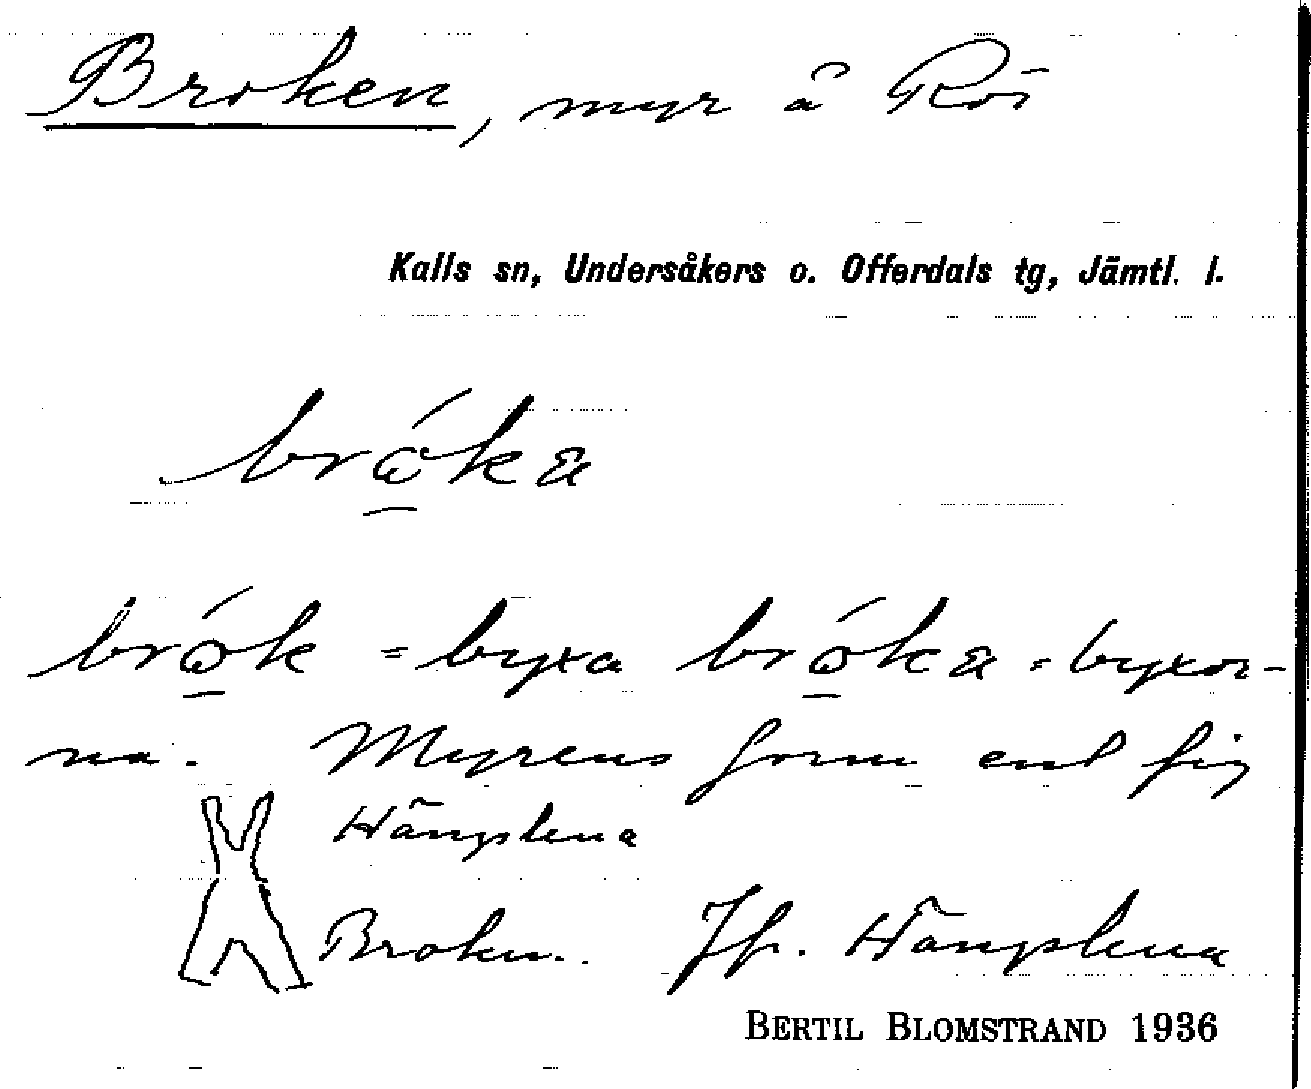 Broken, myr å Röi
Kalls sn, Undersåkers o. Offerdals tg, Jämtl. l.
brók
brók = byxa brók = byxor-
na. Myrens form enl fig
Hängslena
Broken. Jfr. Hängslena
BERTIL BLOMSTRAND 1936